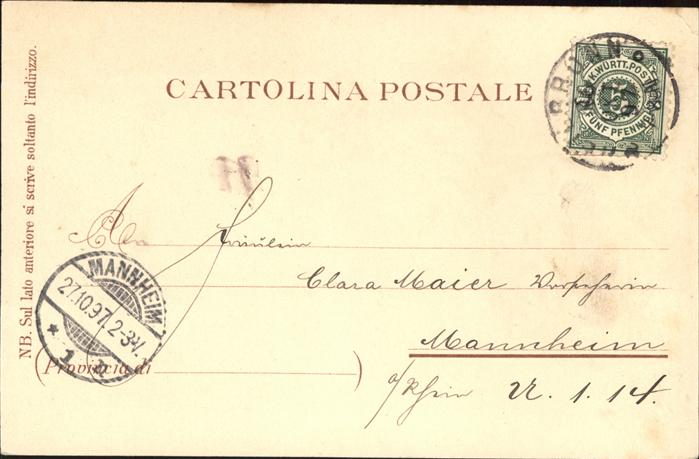 CARTOLINA POSTALE
K. WÜRTT. POST
5
FÜNF PFENNIG
NB. Sul lato anteriore si scrive soltanto l'indirizzo.
A
An
Fräulein
Clara Maier
Mannheim
a/Rhein U. 1. 14.
(Provincia di )
MANNHEIM
27.10.97. 2-3N.
* 1